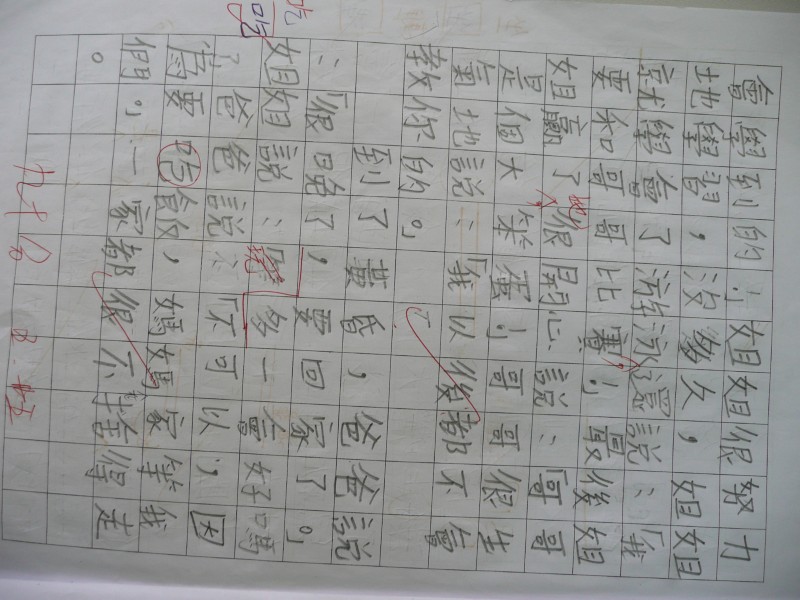 會學到的!姐姐很努力
地學習,沒多久,姐姐
就學會了游泳還說:「我
要和哥哥比賽!最後姐
姐贏了很開心說:「哥哥
是個大笨蛋!哥哥很生
氣地說:「我以後都不會
教你的。」
到了黃昏,爸爸說
:「很晚了,要回家了。」
姐姐說:「多一會好嗎
?爸爸說:「不可以,因
為要吃飯,媽媽家等我
們!,一家都很不捨得走
。
吃